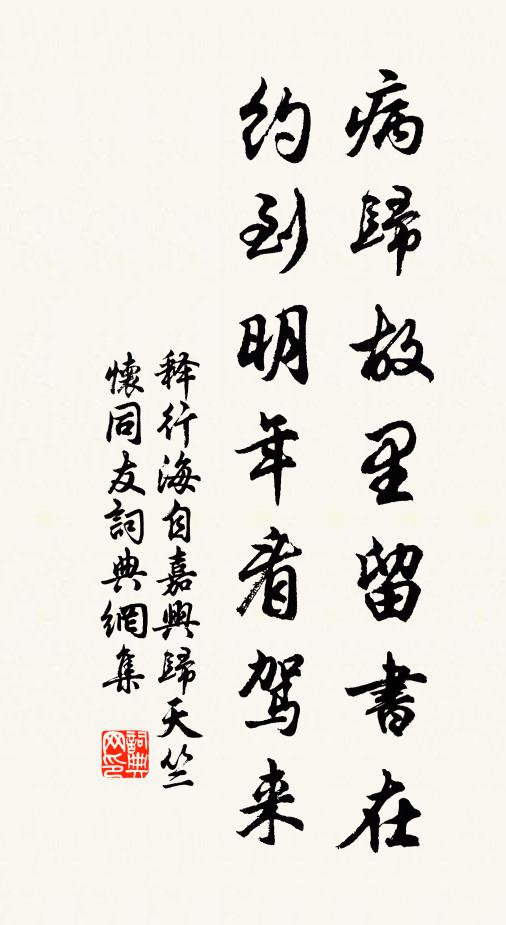 病歸故里留書在
約到明年看駕来
释行海自嘉興歸天竺
懷同友詞典網集
詞典网印